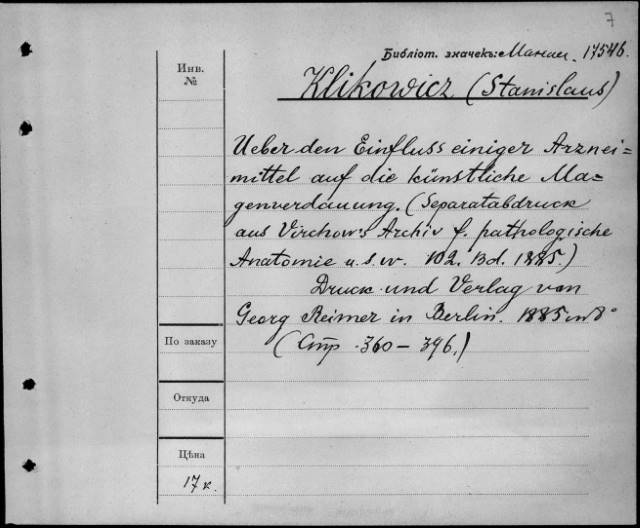 7
Библіот. значекъ: 17546.
Инв.
№
Klikowicz (Stanislaus)
Ueber den Einfluss einiger Arznei=
mittel auf die künstliche Ma=
genverdauung. (Separatabdruck
aus Virchow's Archiv f. pathologische
Anatomie u. s. w. 102. Bd. 1885.)
Druck und Verlag von
Georg Reimer in Berlin. 1885 in 8°
(Стр. 360 — 396.)
По заказу
Откуда
Цѣна
17 к.